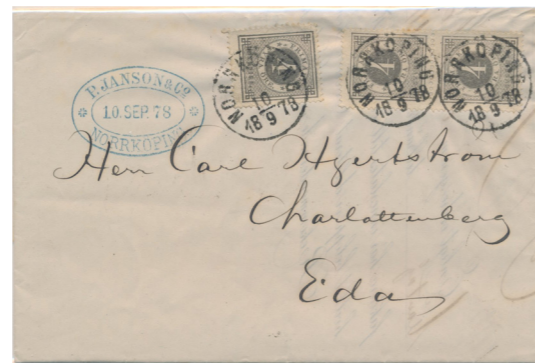 P. JANSON & Co.
10. SEP. 78
NORRKÖPING
NORRKÖPING
10
18 9 78
NORRKÖPING
10
18 9 78
NORRKÖPING
10
18 9 78
4
4
4
Herr Carl Hjertstrom
Charlottenberg
Eda